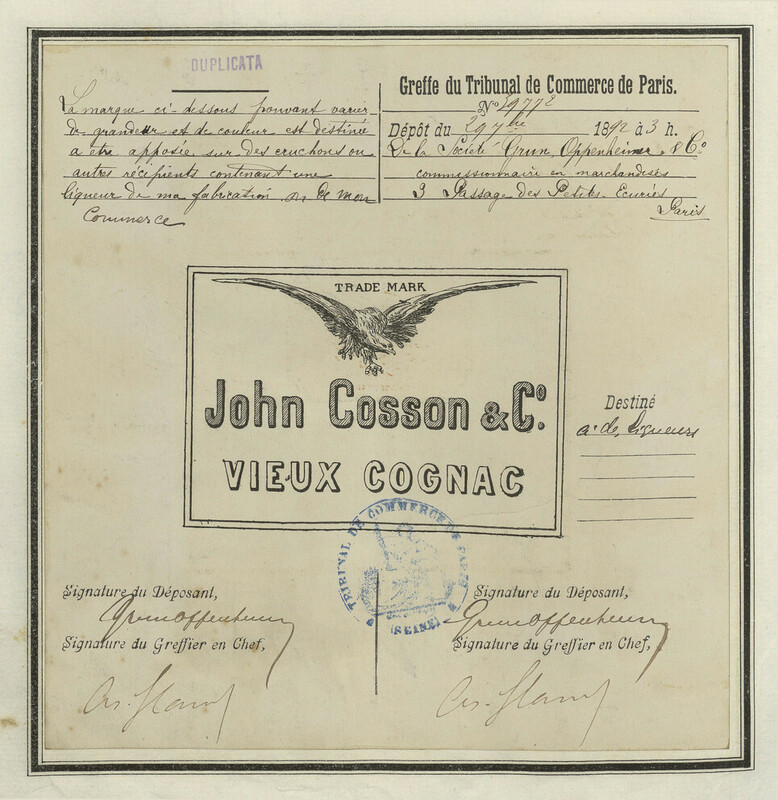 DUPLICATA
La marque ci-dessous pouvant varier
de grandeur et de couleur est destiné
a être apposée sur des cruchons ou
autres récipients contenant une
liqueur de ma fabrication ou de mon
Commerce
Greffe du Tribunal de Commerce de Paris.
No 29772
Dépôt du 29 7bre 1892 à 3 h.
De la Société Grun, Oppenheimer & Co
commissionnaire en marchandises
9 Passage des Petits Ecuries
Paris
TRADE MARK
John Cosson & Co.
VIEUX COGNAC
Destiné
a de Liqueurs
TRIBUNAL DE COMMERCE DE PARIS
(SEINE)
Signature du Déposant,
Signature du Greffier en Chef,
Signature du Déposant,
Signature du Greffier en Chef,